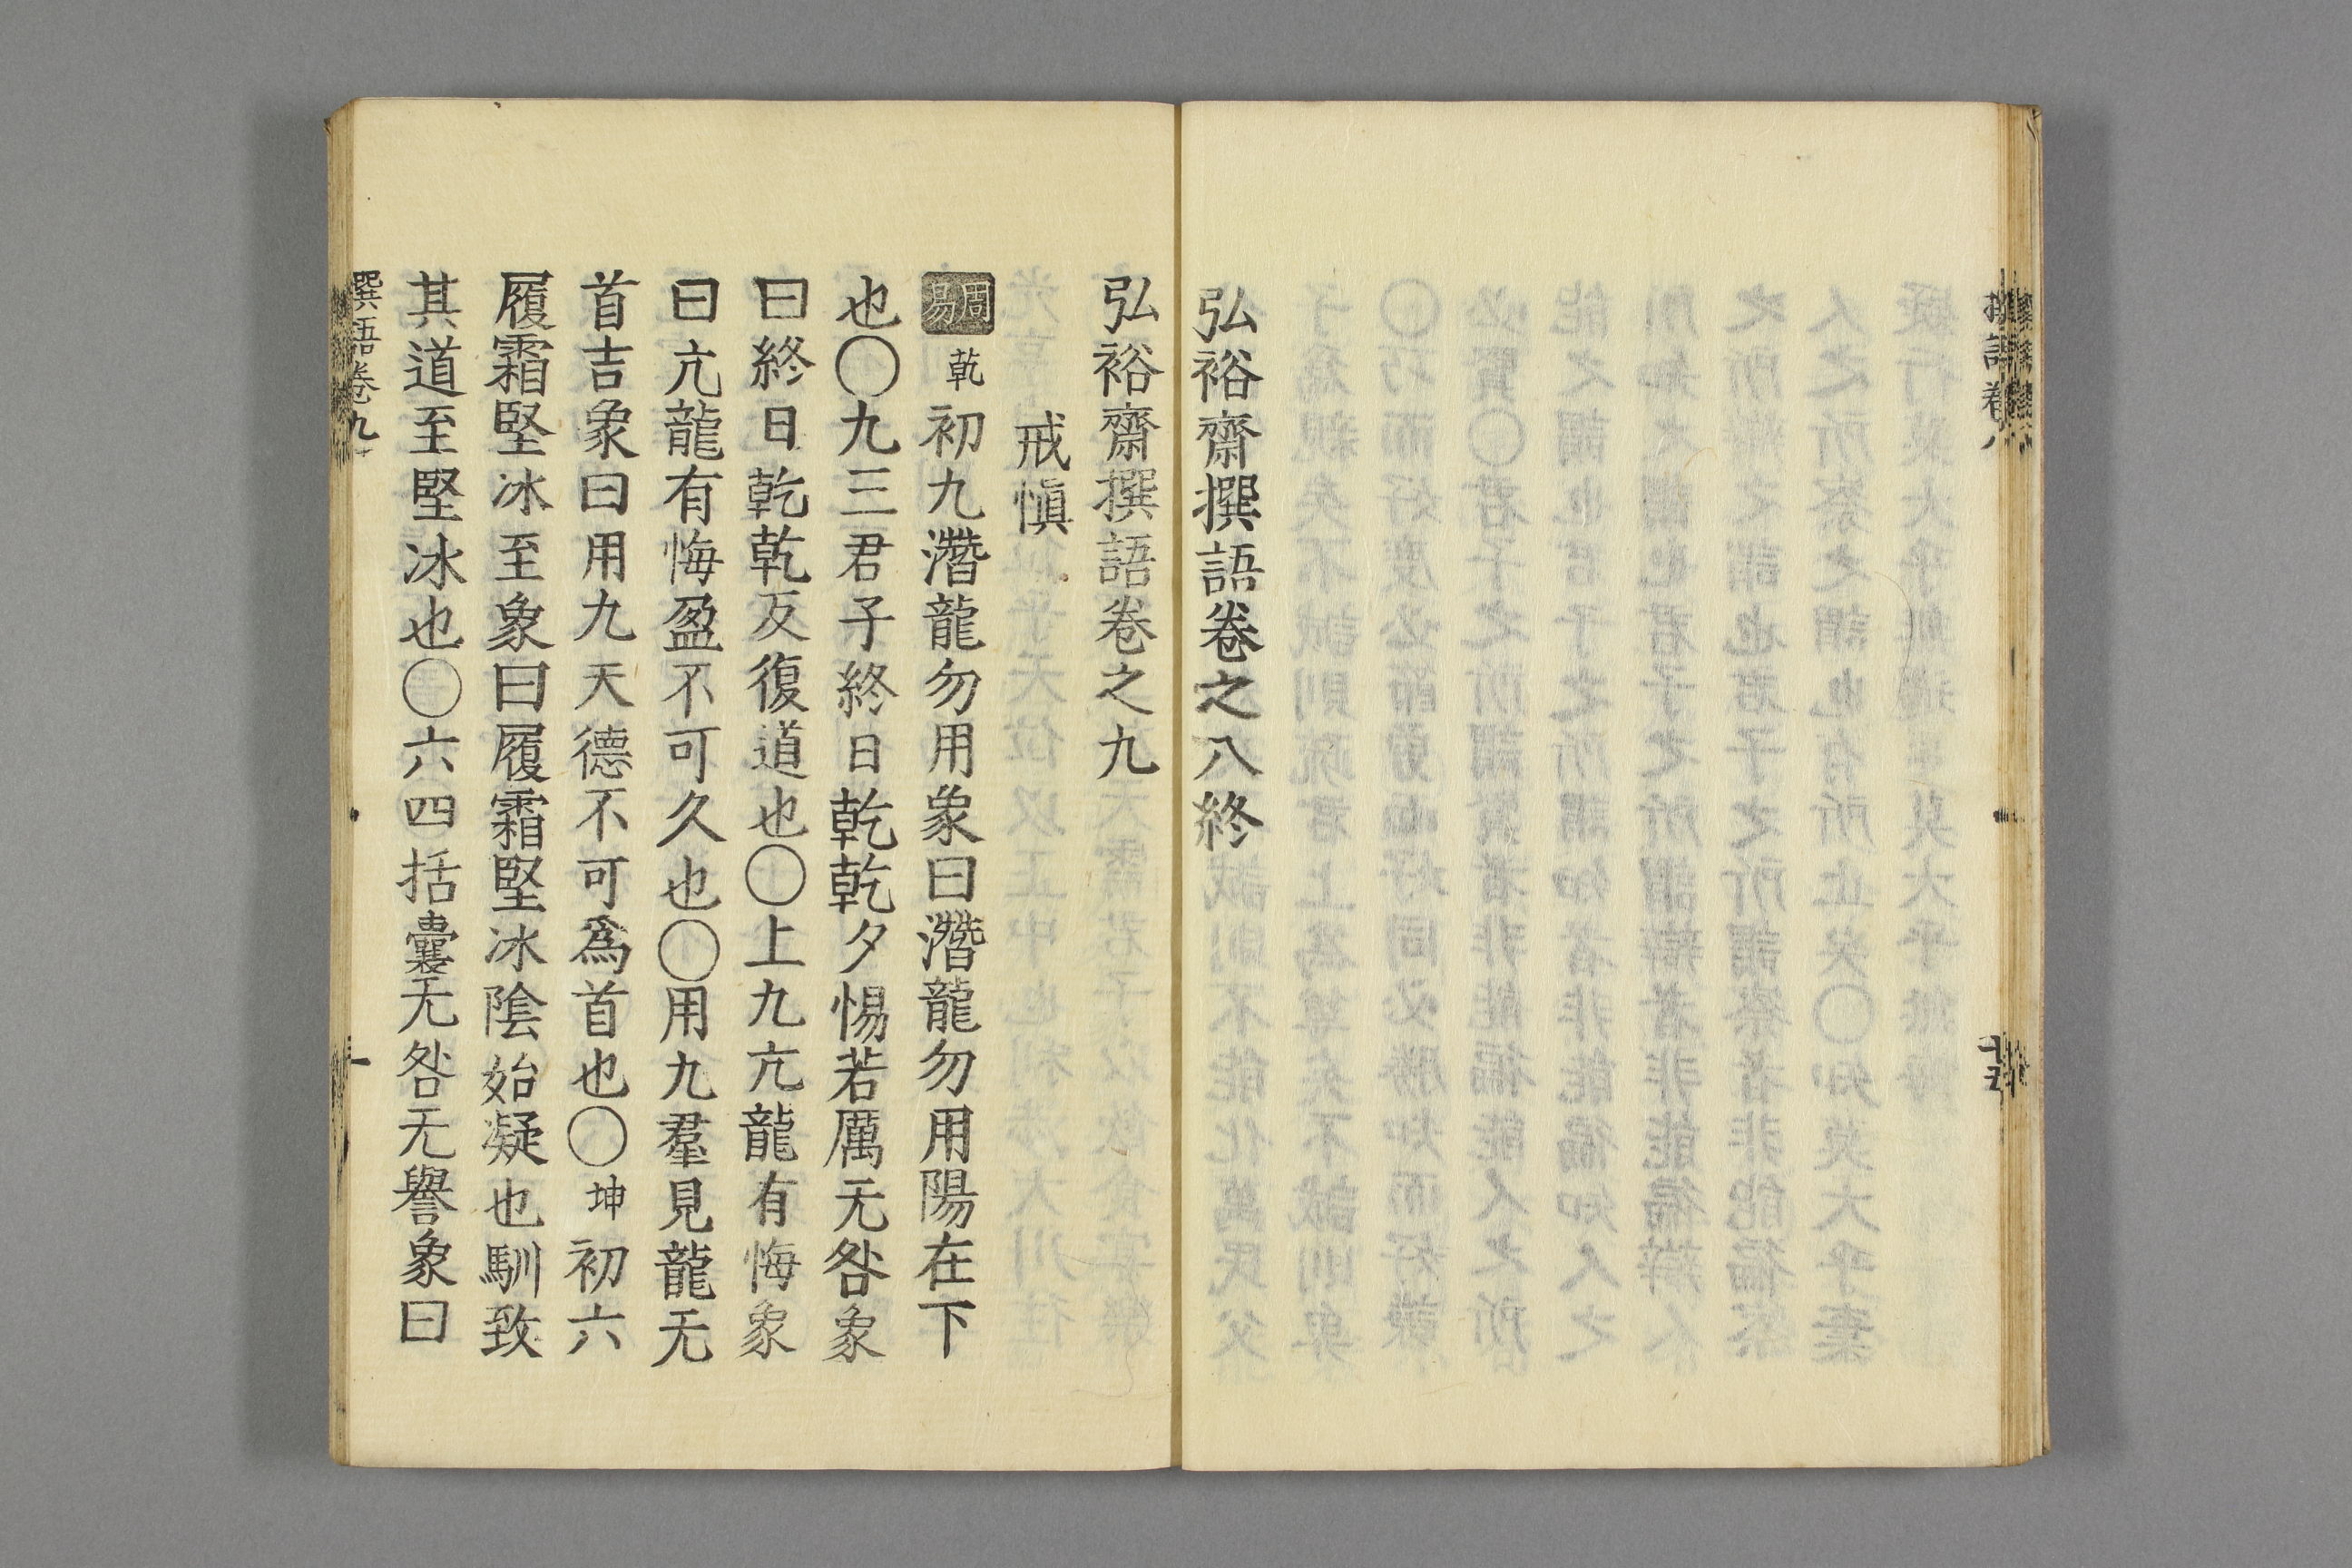 弘裕齋撰語卷之八終
弘裕齋撰語卷之九
戒愼
周易 乾 初九潛龍勿用象曰潛龍勿用陽在下
也〇九三君子終日乾乾夕惕若厲无咎象
曰終日乾乾反復道也〇上九亢龍有悔象
曰亢龍有悔盈不可久也〇用九羣見龍无
首吉象曰用九天德不可爲首也〇坤初六
履霜堅冰至象曰履霜堅冰陰始凝也馴致
其道至堅冰也〇六四括囊无咎无譽象曰
撰語卷九
一